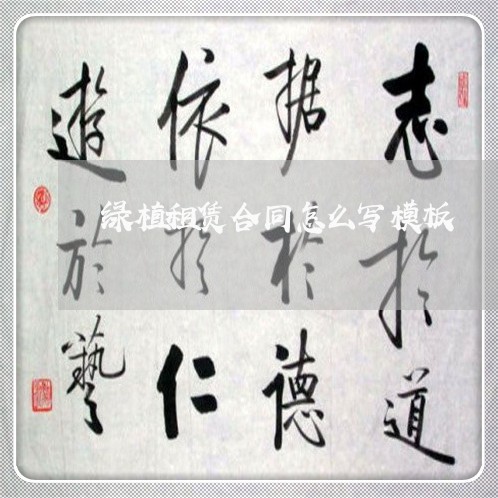 志於道
据於德
依於仁
遊於藝
绿植租赁合同怎么写模板